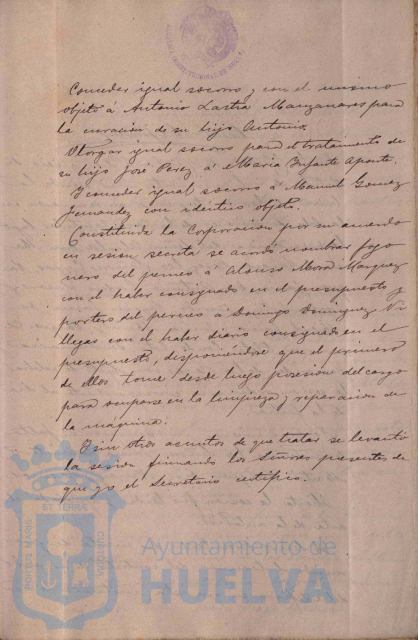 Conceder igual socorro y con el mismo
objeto á Antonio Lastra Manzanares para
la curación de su hijo Antonio.
Otorgar igual socorro para el tratamiento de
su hijo José Perez á María Infante Aponte.
Y conceder igual socorro á Manuel Gomez
Fernandez con identico objeto.
Constituida la Corporacion por su acuerdo
en sesion secreta se acordó nombrar fogo
nero del perneo á Alonso Mora Marquez
con el haber consignado en el presupuesto y
portero del perneo á Domingo Dominguez Vi
llegas con el haber diario consignado en el
presupuesto, disponiendose que el primero
de ellos tome desde luego posesión del cargo
para ocuparse en la limpieza y reparacion de
la máquina.
Y sin otros asuntos de que tratar se levantó
la sesion firmando los Señores presentes de
que yo el Secretario certifico.
PORTUS MARIS
ET TERRÆ
CUSTODIA
Ayuntamiento de
HUELVA